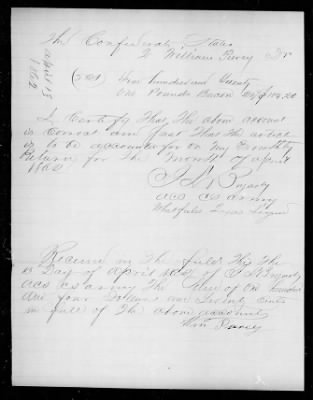 April 15
1862
The Confederate States
To William Dancy Dr
(521) Five hundred and Twenty
one Pounds Bacon $104.20
I Certify That The above account
is Correct and Just That the article
is to be accounted for on my Monthly
Return for The Month of April
1862
ACS CS Army
Whitfields Texas Legion
Received in The field This The
15 Day of April 1862 of
ACS CS Army The Sum of One hundred
And four Dollars and Twenty Cents
in full of The above account
Wm Dancy